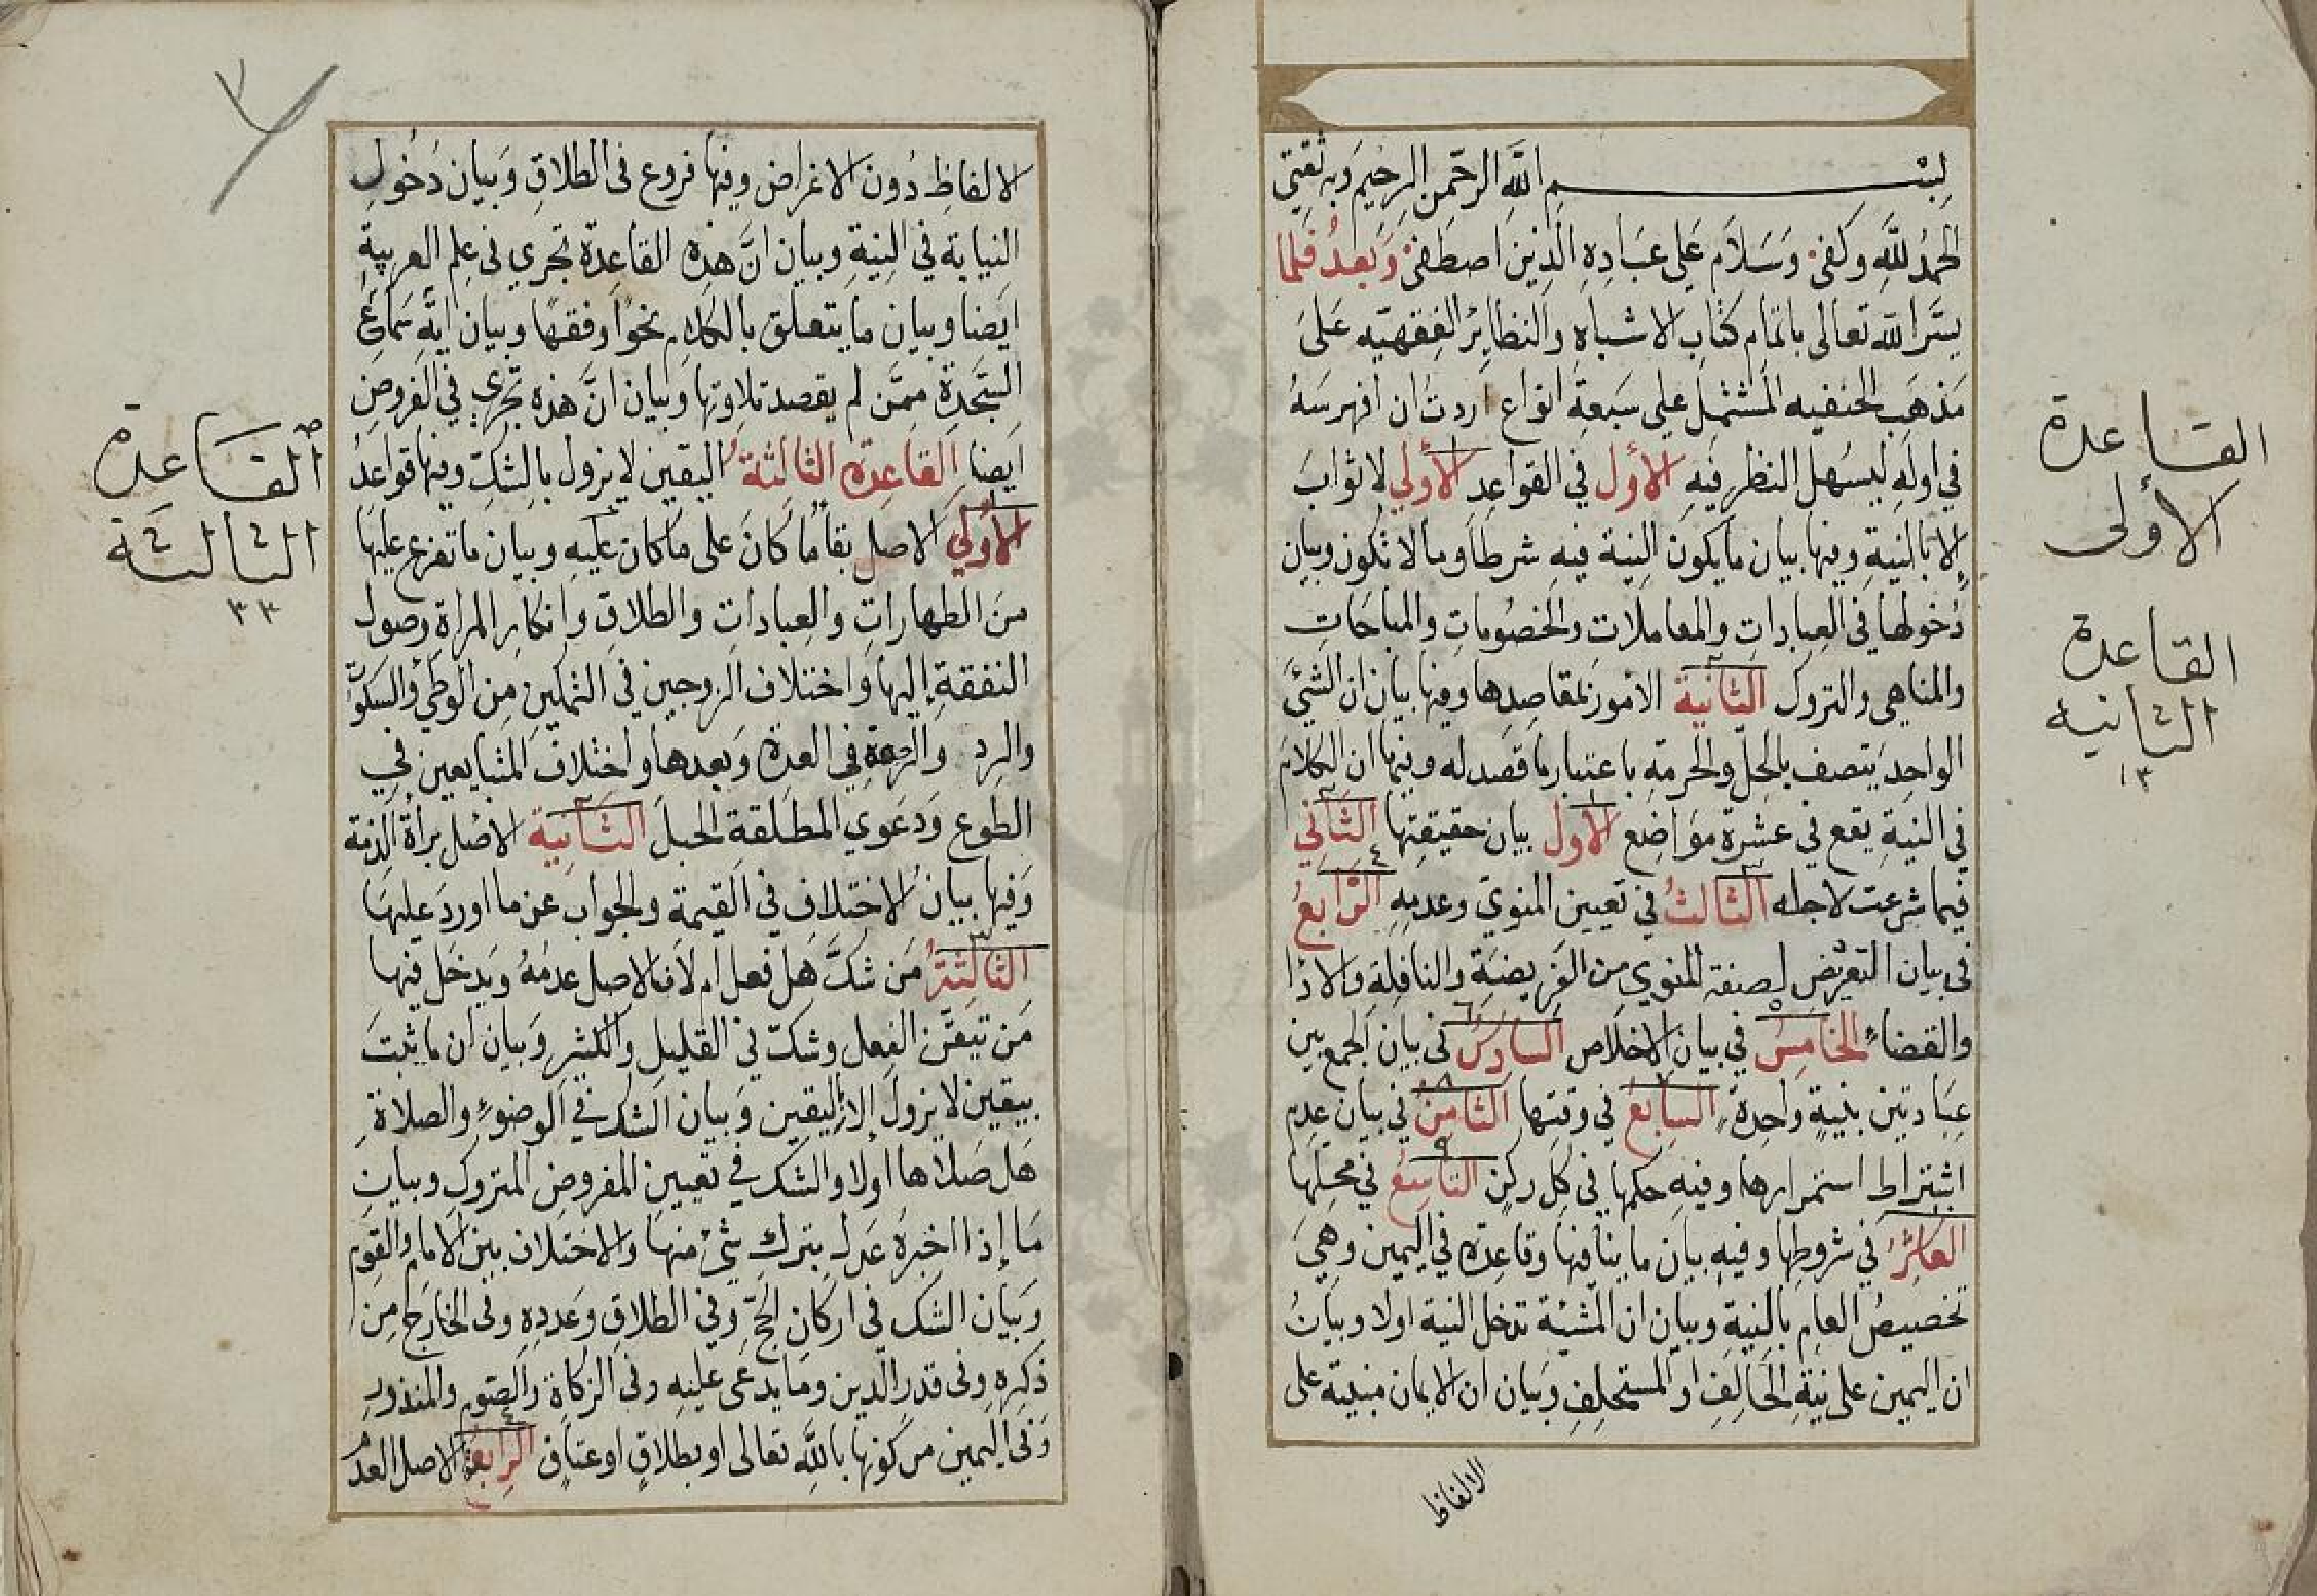 بِسْم اللَّه الرحمن الرحيم وبه ثقتي
الحمدُ للَّهِ وكفى وَسَلاَم عَلى عبَادِهِ الَّذِين اصطَفى وَبَعدُ فَلما
يسَّر اللّه تعالى باتمام كتاب الاشباه والنظاير الفقهيّه عَلىَ
مَذهَب الحنفيه المشتمل على سَبعةِ انواع اردتُ ان افهرسَهُ
في اولهِ ليسهل النظر فيه الأول في القواعدِ الأولي لا ثوابَ
إلا بالنيةِ وفيها بيان ما يكون النية فيه شرطا وما لا تكون وبيان
دُخولها في العبادات والمعاملات والخصُومات والمباحَاتِ
والمناهي والتروك الثانية الامور بمقاصِدها وفيها بيان ان الشيئَ
الواحِد يَتصف بالحل والحرمة باعتبار ما قصد له وفيها ان الكلامَ
في النيةِ يقع في عشرة مَوَاضِع الأول بيان حقيقتها الثاني
فيما شرعت لاجله الثالثُ في تعيين المنوي وعدمهِ الرابعُ
في بيان التعرض لصفة المنوي من الفريضَةِ والنافِلة والادا
والقضاء الخامسُ في بيان الاخلاص السادسُ في بيان الجمع بين
عبَادتين بنيةٍ واحِدة السابعُ في وقتها الثامنُ في بيان عدم
اشتراط استمرارها وفيه حكمها في كل ركن التاسعُ في محلها
العاشرُ في شروطها وفيه بيان ما ينافيها وقاعدة في اليمين وهيَ
تخصيصُ العام بالنيةِ وبيان ان المشئة تدخل النية اولا وبيانُ
ان اليمين على نيةِ الحَالفِ او المستحلِفِ وبَيان ان الايمان مبنية على
الالفاظ
القاعدة
الأولى
القاعدة
الثانيه
١٣
الالفاظِ دُون الاغراض وفيها فروع في الطلاقِ وَبَيان دُخولِ
النيابة في النيةِ وبيان انَّ هذه القاعِدة تجري في عِلم العربيةِ
ايضا وبيان ما يتعلق بالكلام نحوًا وفقهًا وبيان ايَة سَماع
السَّجدةِ ممَّن لم يقصد تلاوتها وبيان انَّ هذه تجري في الفروضِ
ايضا القاعِدة الثالثةُ اليقين لا يزول بالشكّ وفيها قواعدُ
الأولي الاصل بقا مَا كَانَ على ما كان عليهِ وبيان ما تفرع عليها
منَ الطهاراتِ والعباداتِ والطلاقِ وانكار المراة وصول
النفقة إليها واختلاف الزوجين في التمكين من الوطئ والسكوت
والرد والرجعة في العدة وَبعدها واختلاف المتبايعين في
الطوع وَدَعوي المطلقةِ الحبلَ الثانية الاصل برأة الذمة
وَفيها بيانُ الاختلافِ في القيمة والجواب عن ما اوردَ عليها
الثالثة مَن شكَّ هَل فعل ام لا فالاصل عدمهُ ويَدخل فيها
مَن تيقَّن الفعل وشكّ في القليل والكثير وَبيان ان ما ثبتَ
بيقين لا يزول إلا باليقين وَبيان الشك في الوضوءِ والصلاةِ
هَل صَلاها اولا والشك في تعيين المفروض المتروك وبيان
مَا إذا اخبرهُ عَدل بترك شئ منها والاختلاف بين الامام والقوم
وَبَيان الشك في اركان الحجّ وفي الطلاقِ وَعَددِهِ وفي الخارَج مِن
ذَكرِهِ وفي قدر الدين ومَا يدعَى عليهِ وفي الزكاة والصّوم والمنذور
وفي اليمين من كونها باللَّه تعالى او بطلاقٍ او عتاق الرابعة الاصل العدمُ
القَاعِدة
الثالثة
٣٣